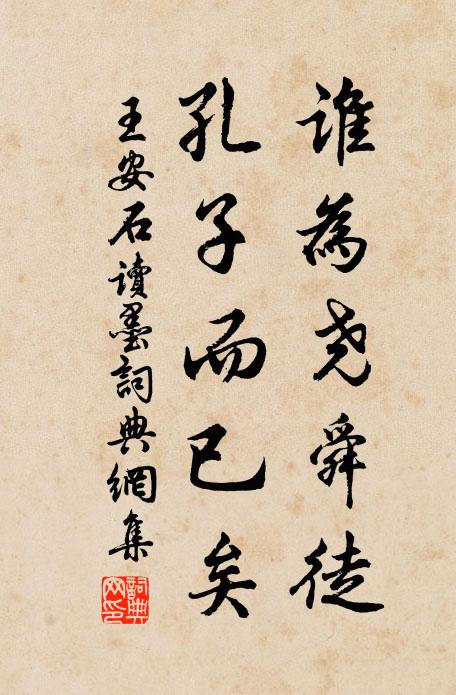 誰為堯舜徒
孔子而已矣
王安石讀墨詞典網集
詞典網印